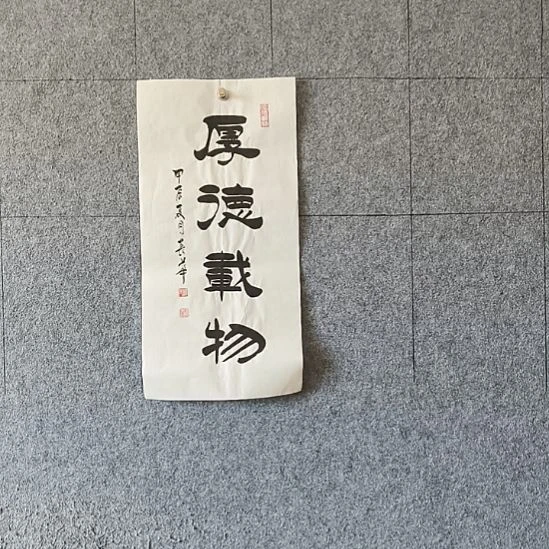 厚德載物
甲辰夏月